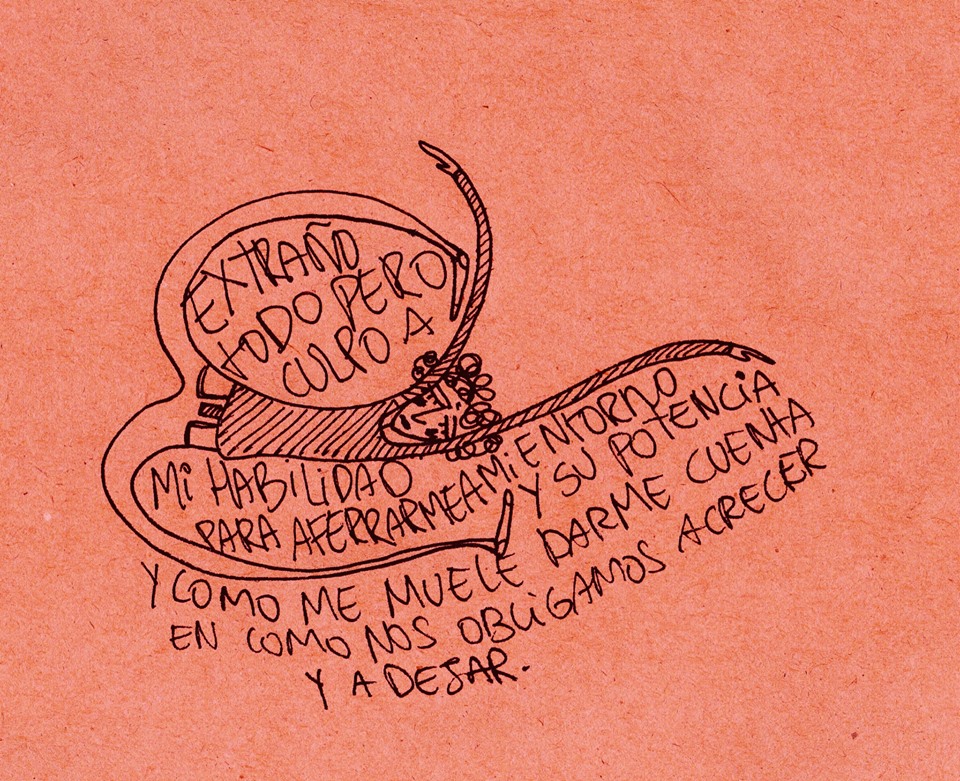 EXTRAÑO
TODO PERO
CULPO A
MI HABILIDAD
PARA AFERRARME A MI ENTORNO
Y SU POTENCIA
Y COMO ME MUELE DARME CUENTA
EN COMO NOS OBLIGAMOS A CRECER
Y A DEJAR.